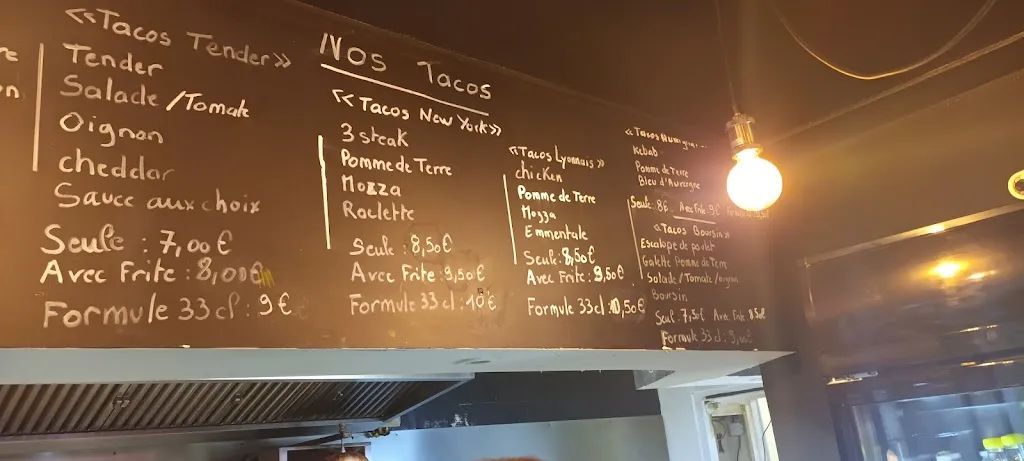 Nos Tacos
<<Tacos Tender>>
Tender
Salade/Tomate
Oignon
cheddar
Sauce aux choix
Seule : 7,00€
Avec Frite : 8,00€
Formule 33cl : 9€
<<Tacos New York>>
3 steak
Pomme de Terre
Mozza
Raclette
Seule : 8,50€
Avec Frite : 9,50€
Formule 33cl : 10€
<<Tacos Lyonnais>>
chicken
Pomme de Terre
Mozza
Emmentale
Seule : 8,50€
Avec Frite : 9,50€
Formule 33cl : 10,50€
<<Tacos
Kebab
Pomme de Terre
Bleu d'Auvergne
Seule : 8€ Avec Frite 9€
<<Tacos Boursin>>
Escalope de poulet
Galette Pomme de Terre
Salade/Tomate/oignon
Boursin
Seul 7,50€ Avec Frite 8,50€
Formule 33cl :